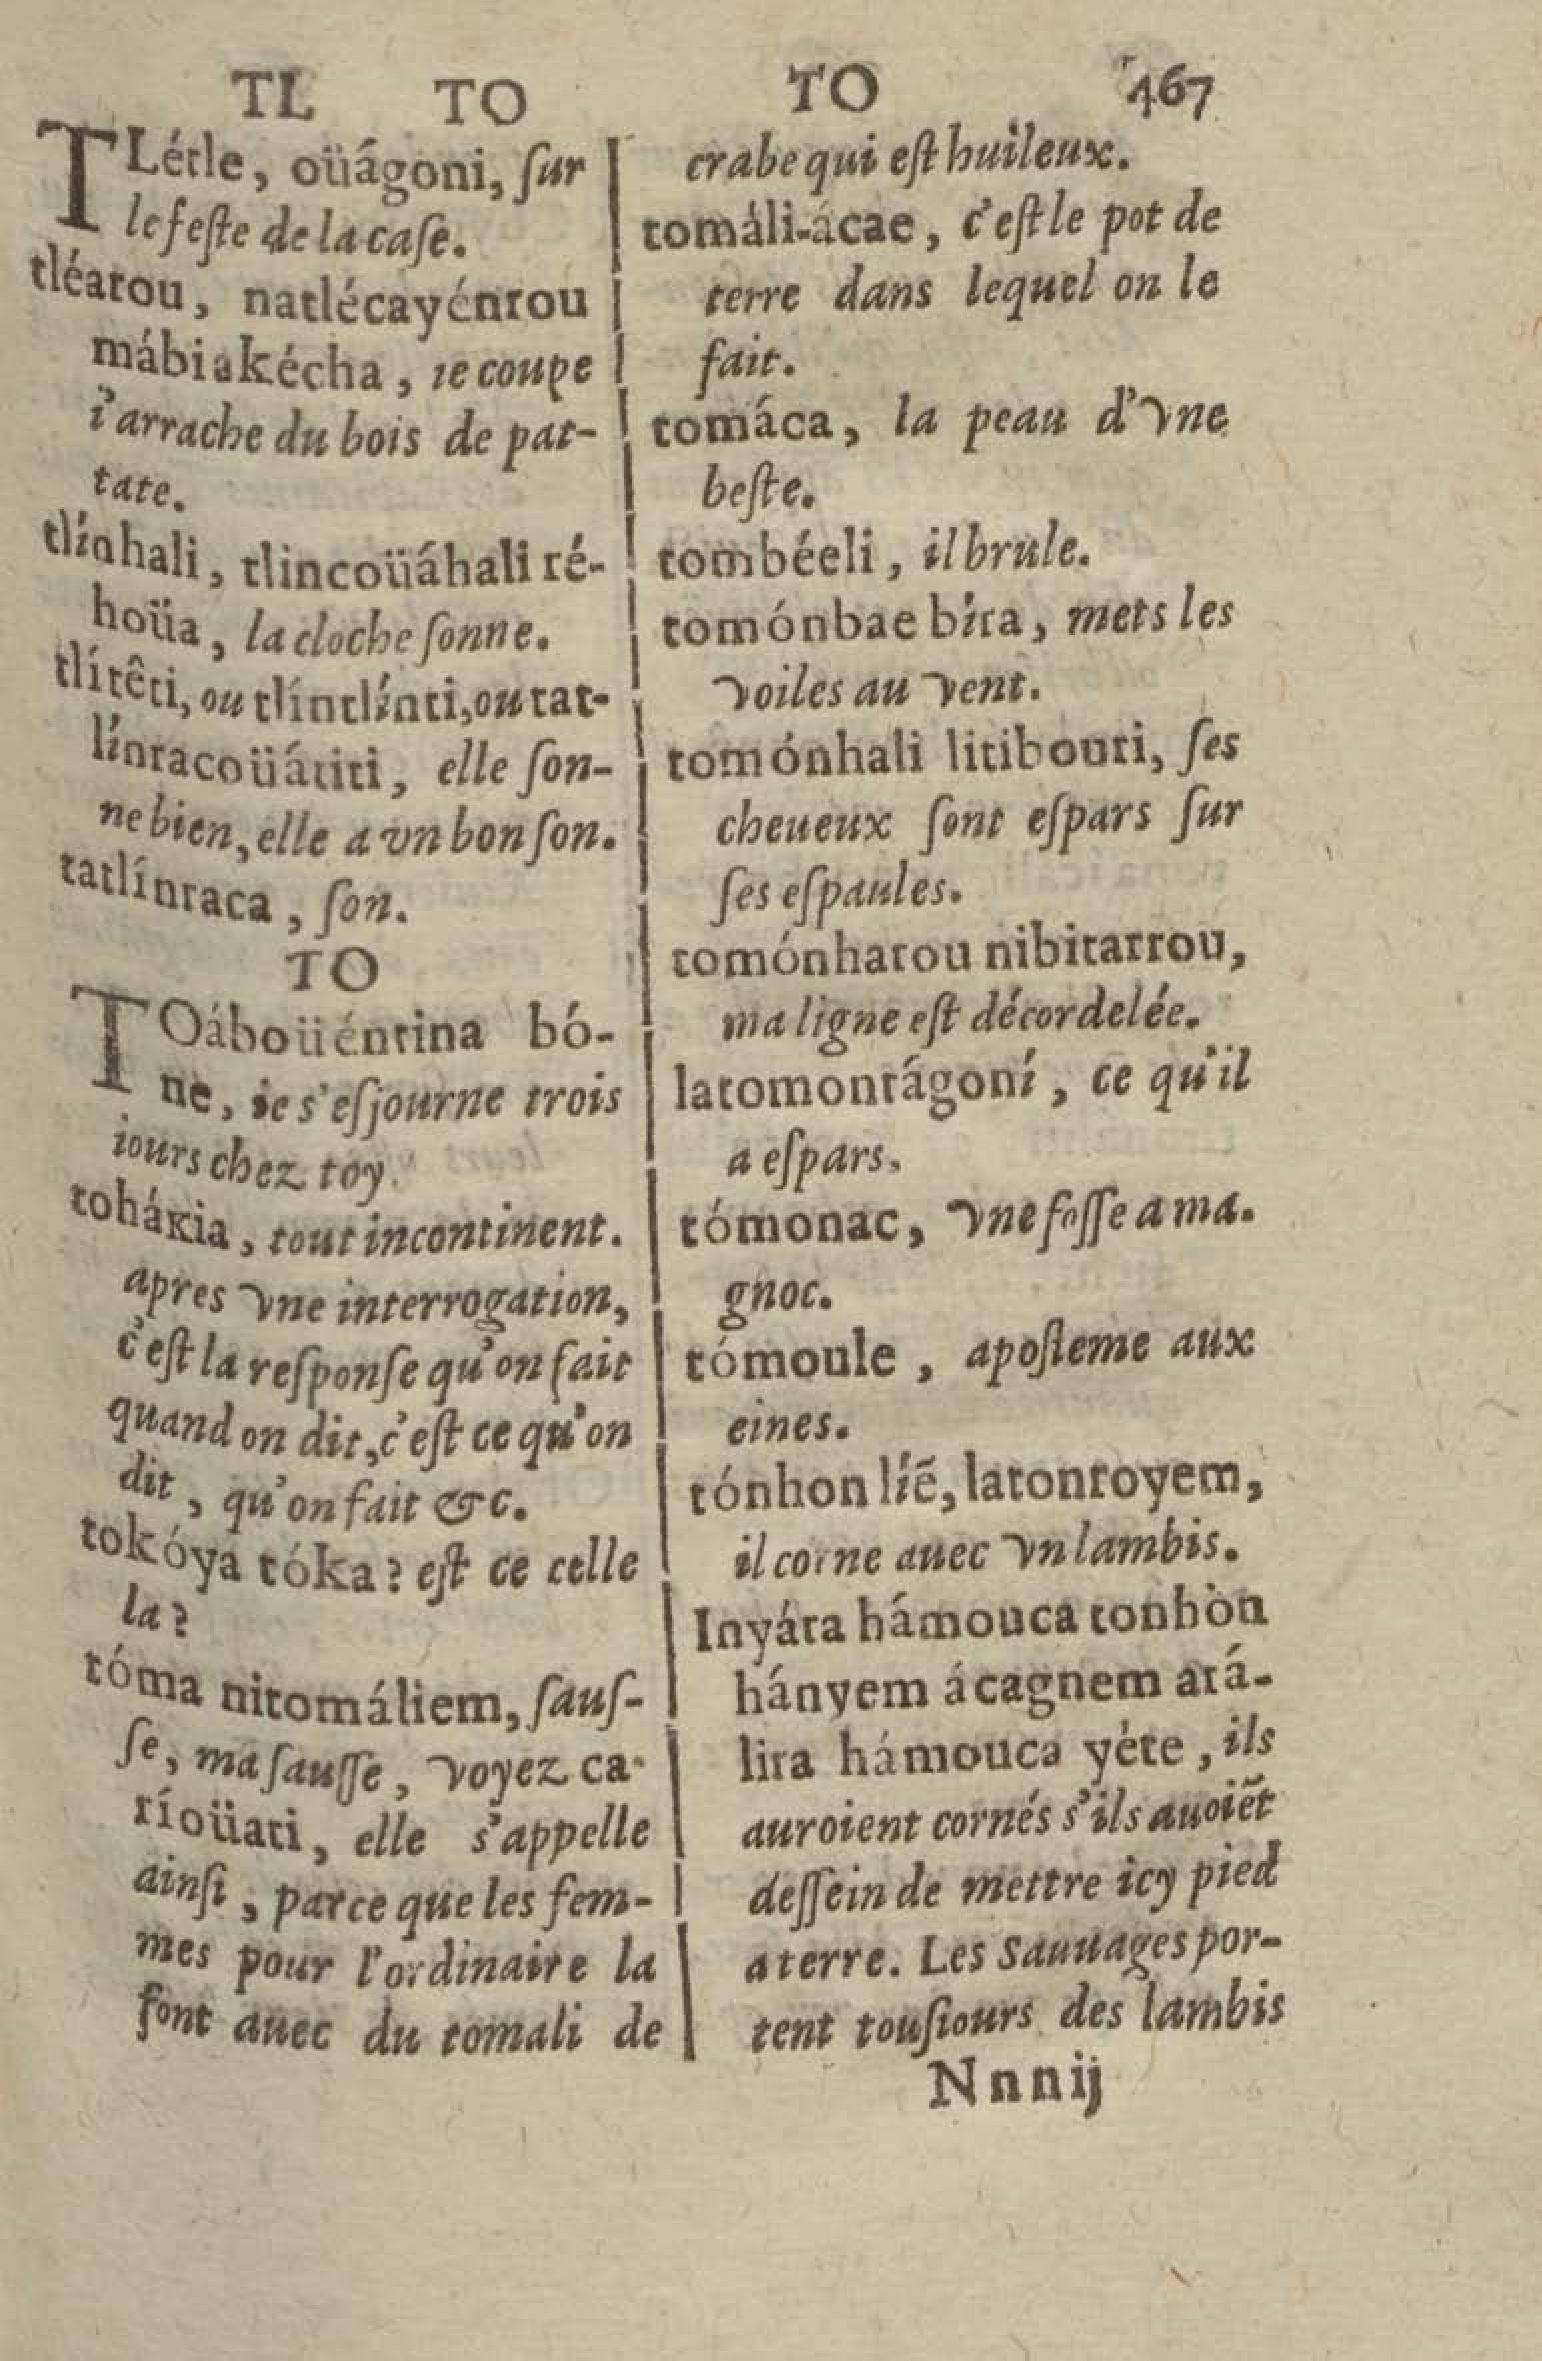 TL TO TO 467
TLétle, oüágoni, ſur
le feſte de la caſe.
tléatou, natlécayéntou
mábiakécha, ie coupe
i'arrache du bois de pat-
tate.
tlínhali, tlincoüáhali ré-
hoüa, la cloche ſonne.
tlítêti, ou tlíntlínti, ou tat-
línracoüátiti, elle ſon-
ne bien, elle a vn bon ſon.
tatlínraca, ſon.
TO
TOáboüéntina bó-
ne, ie s'eſjourne trois
iours chez toy.
tohákia, tout incontinent.
apres vne interrogation,
c'eſt la reſponſe qu'on fait
quand on dit, c'eſt ce qu'on
dit, qu'on fait &c.
tokóya tóka? eſt ce celle
la?
tóma nitomáliem, ſauſ-
ſe, ma ſauſſe, voyez ca-
ríoüati, elle s'appelle
ainſi, parce que les fem-
mes pour l'ordinaire la
font auec du tomali de
crabe qui eſt huileux.
tomáli-ácae, c'eſt le pot de
terre dans lequel on le
fait.
tomáca, la peau d'vne
beſte.
tombéeli, il brule.
tomónbae bíra, mets les
voiles au vent.
tomónhali litibouri, ſes
cheueux ſont eſpars ſur
ſes eſpaules.
tomónharou nibitarrou,
ma ligne eſt décordelée.
latomontágoní, ce qu'il
a eſpars.
tómonac, vne foſſe a ma-
gnoc.
tómoule, apoſteme aux
eines.
tónhon líẽ, latontoyem,
il corne auec vn lambis.
Inyára hámouca tonhòn
hányem ácagnem atá-
lira hámouca yète, ils
auroient cornés s'ils auoiẽt
deſſein de mettre icy pied
a terre. Les Sauuages por-
tent touſiours des lambis
Nnnij